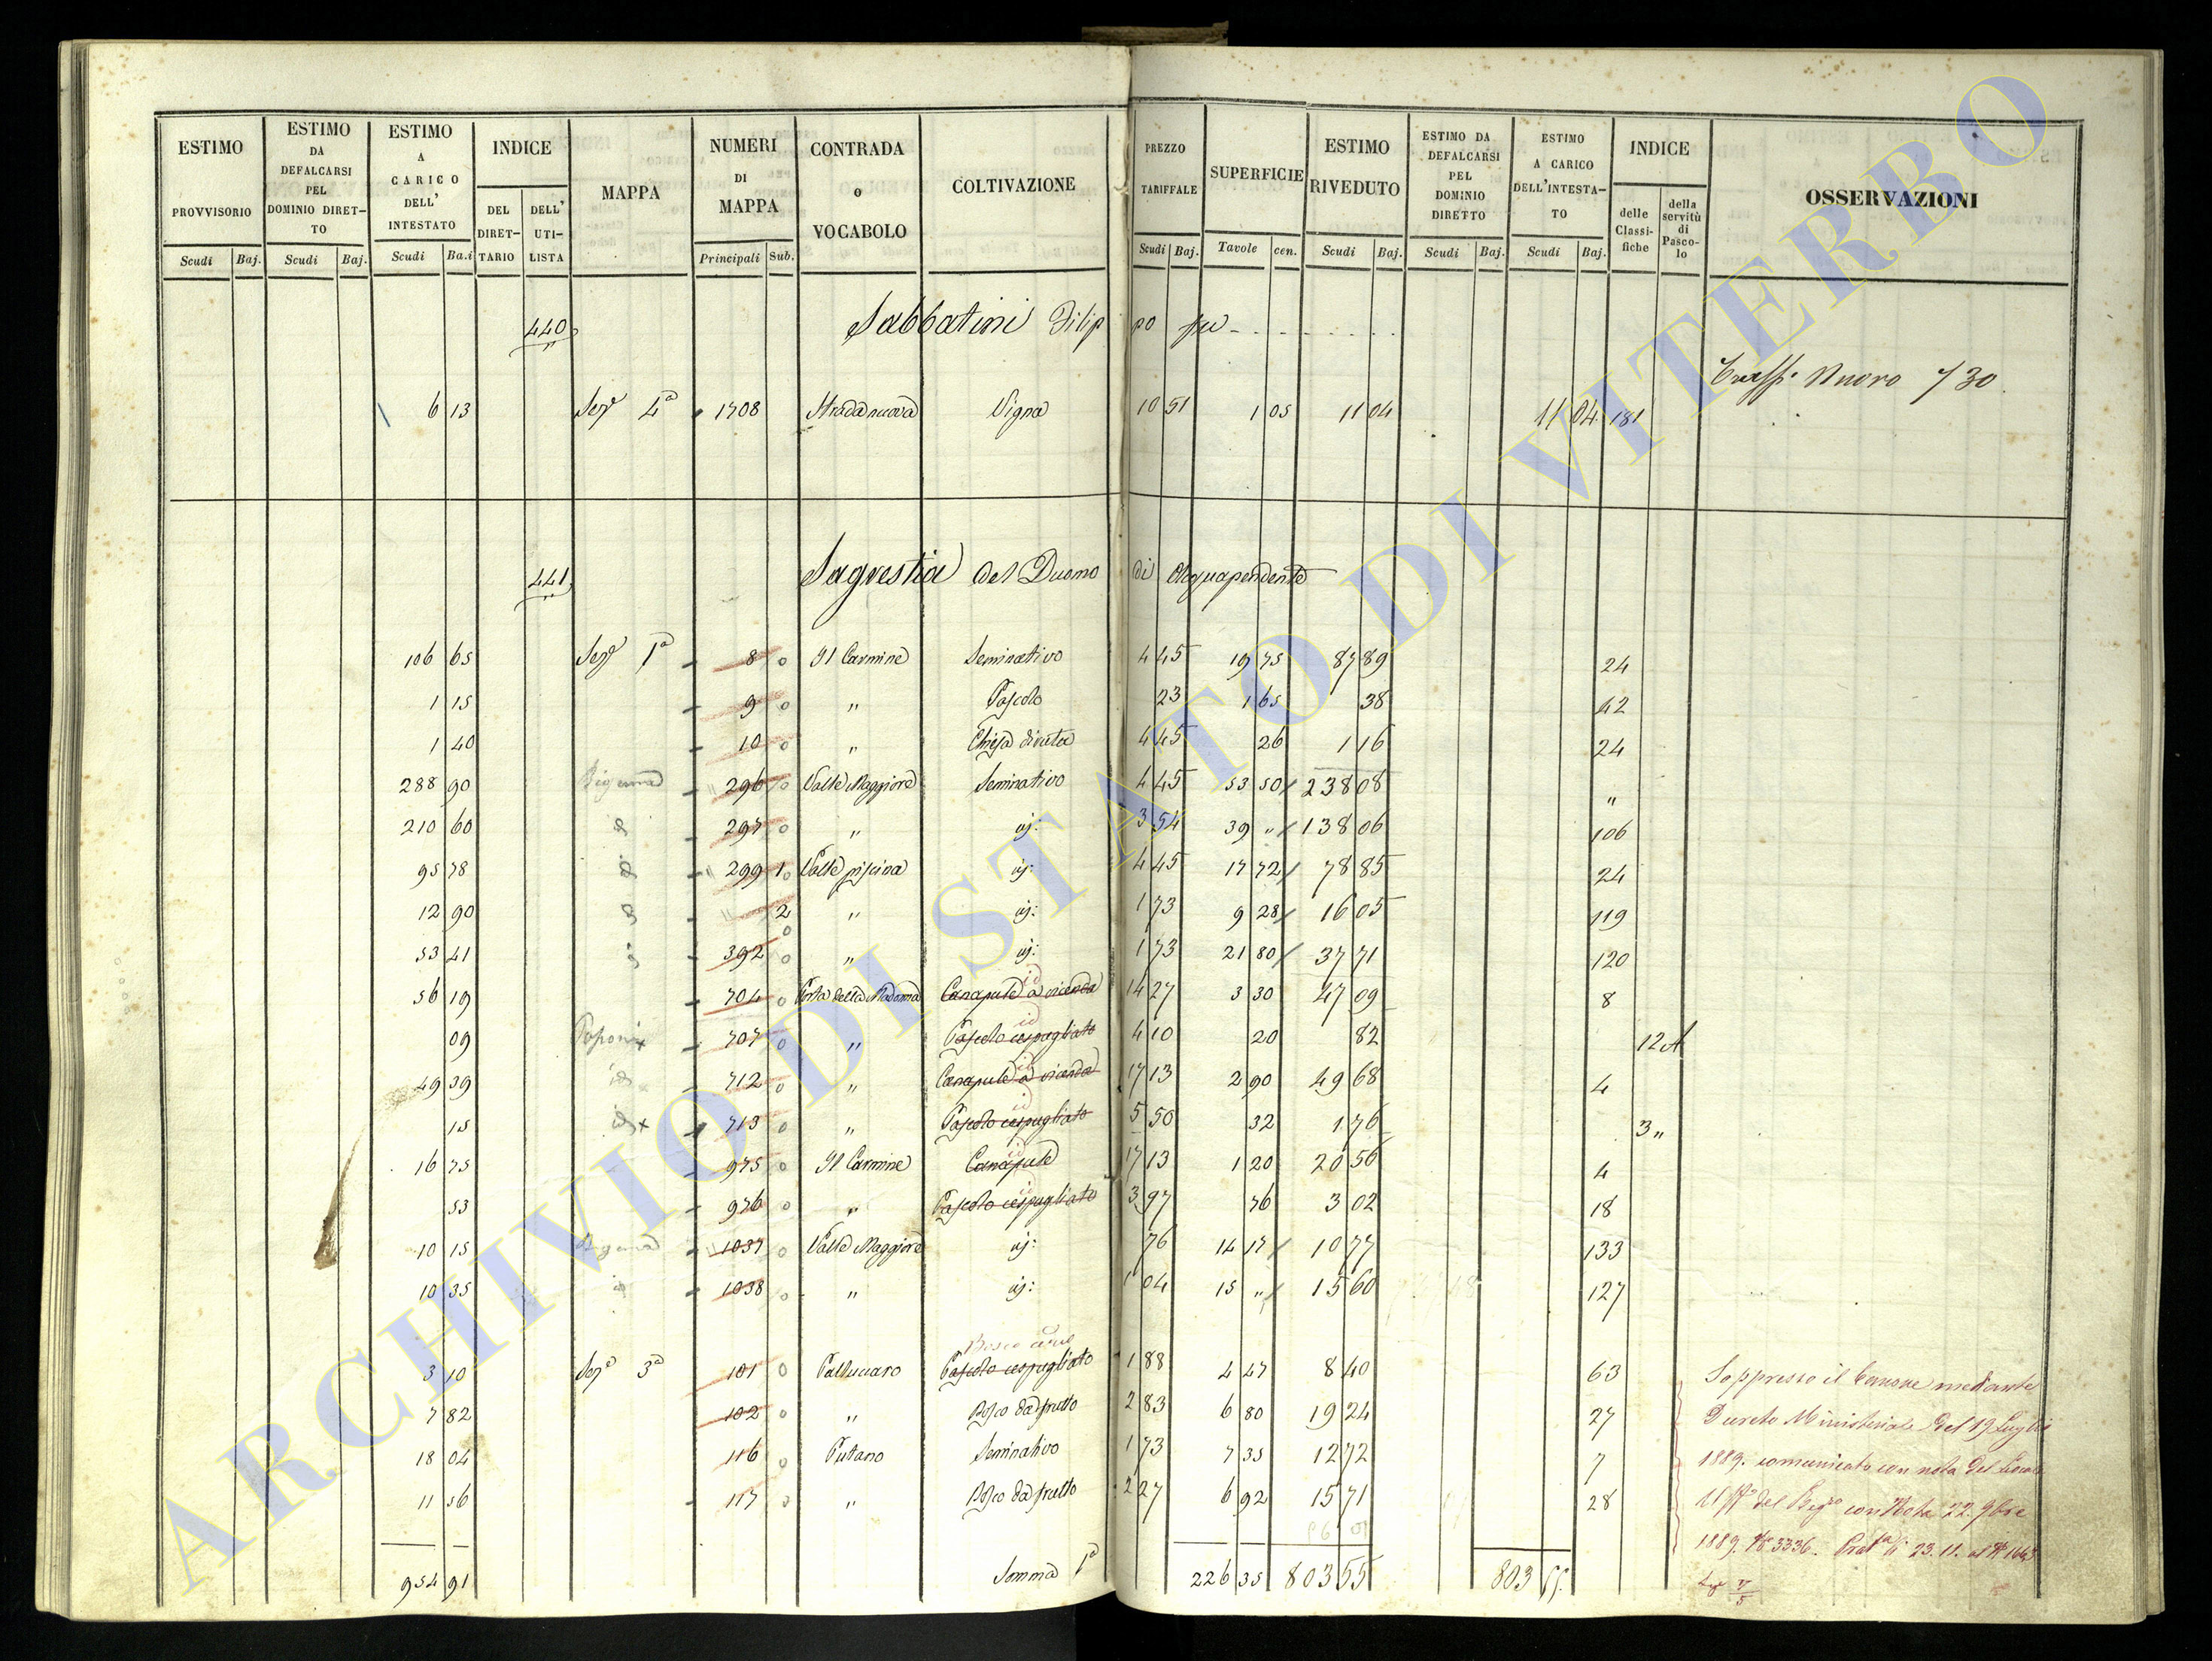 ESTIMO PROVVISORIO Scudi Baj.
ESTIMO DA DEFALCARSI PEL DOMINIO DIRETTO Scudi Baj.
ESTIMO A CARICO DELL' INTESTATO Scudi Ba.i
INDICE DEL DIRETTARIO DELL' UTILISTA
MAPPA
NUMERI DI MAPPA Principali Sub.
CONTRADA o VOCABOLO
COLTIVAZIONE
PREZZO TARIFFALE Scudi Baj.
SUPERFICIE Tavole cen.
ESTIMO RIVEDUTO Scudi Baj.
ESTIMO DA DEFALCARSI PEL DOMINIO DIRETTO Scudi Baj.
ESTIMO A CARICO DELL'INTESTATO Scudi Baj.
INDICE delle Classifiche della servitù di Pascolo
OSSERVAZIONI
440 Sabbatini Filippo fu
Nuovo 730
6 13 Sez.e 4a 1708 Strada nuova Vigna 10 51 1 05 11 04 11 04 181
441 Sagrestia del Duomo di Acquapendente
106 65 Sez.e 1a 8 0 Il Carmine Seminativo 4 45 19 75 87 89 24
1 15 9 0 " Pascolo 23 1 65 38 42
1 40 10 0 " Chiesa diruta 4 45 26 1 16 24
288 90 296 0 Valle Maggiore Seminativo 4 45 53 50 238 08 "
210 60 297 0 " id: 3 54 39 " 138 06 106
95 78 299 1 0 Valle piscina id: 4 45 17 72 78 85 24
12 90 " 2 0 " id: 1 73 9 28 16 05 119
53 41 392 0 " id: 1 73 21 80 37 71 120
56 19 704 0 Porta della Madonna Canapule a vicenda 14 27 3 30 47 09 8
09 707 0 " Pascolo cespugliato 4 10 20 82 12 A
49 39 712 0 " Canapule a vicenda 17 13 2 90 49 68 4
15 713 0 " Pascolo cespugliato 5 50 32 1 76 3 "
16 75 975 0 Il Carmine Canapule 17 13 1 20 20 56 4
53 976 0 " Pascolo cespugliato 3 97 76 3 02 18
10 15 1037 0 Valle Maggiore id: 76 14 17 10 77 133
10 35 1038 0 " id: 1 04 15 " 15 60 127
Bosco
3 10 Sez.e 3a 101 0 Pascolo cespugliato 1 88 4 47 8 40 63
7 82 102 0 " Bosco da frutto 2 83 6 80 19 24 27
18 04 116 0 Putano Seminativo 1 73 7 35 12 72 7
11 56 117 0 " Bosco da frutto 2 27 6 92 15 71 28
954 91 Somma 1a 226 35 803 55 803 55
Soppresso il Canone mediante
Decreto Ministeriale del 19 Luglio
1889. comunicato con nota del
del con Nota 22. 9bre
1889. No 3336. 23. 11. al No
ARCHIVIO DI STATO DI VITERBO